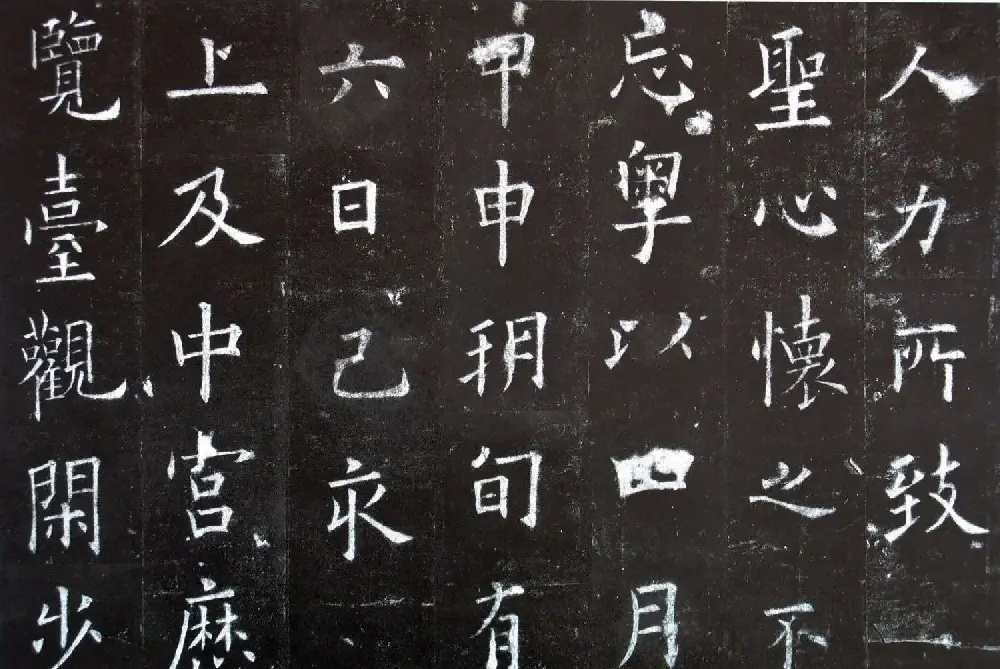 人力所致
聖心懷之不
忘粵以四月
甲申朔旬有
六日己亥
上及中宮歷
覽臺觀閑步